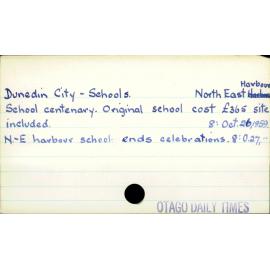 Harbour
Dunedin City - Schools. North East
School centenary. Original school cost £365 site
included. 8: Oct. 26, 1959.
N.-E harbour school ends celebrations. 8: O.27,
OTAGO DAILY TIMES